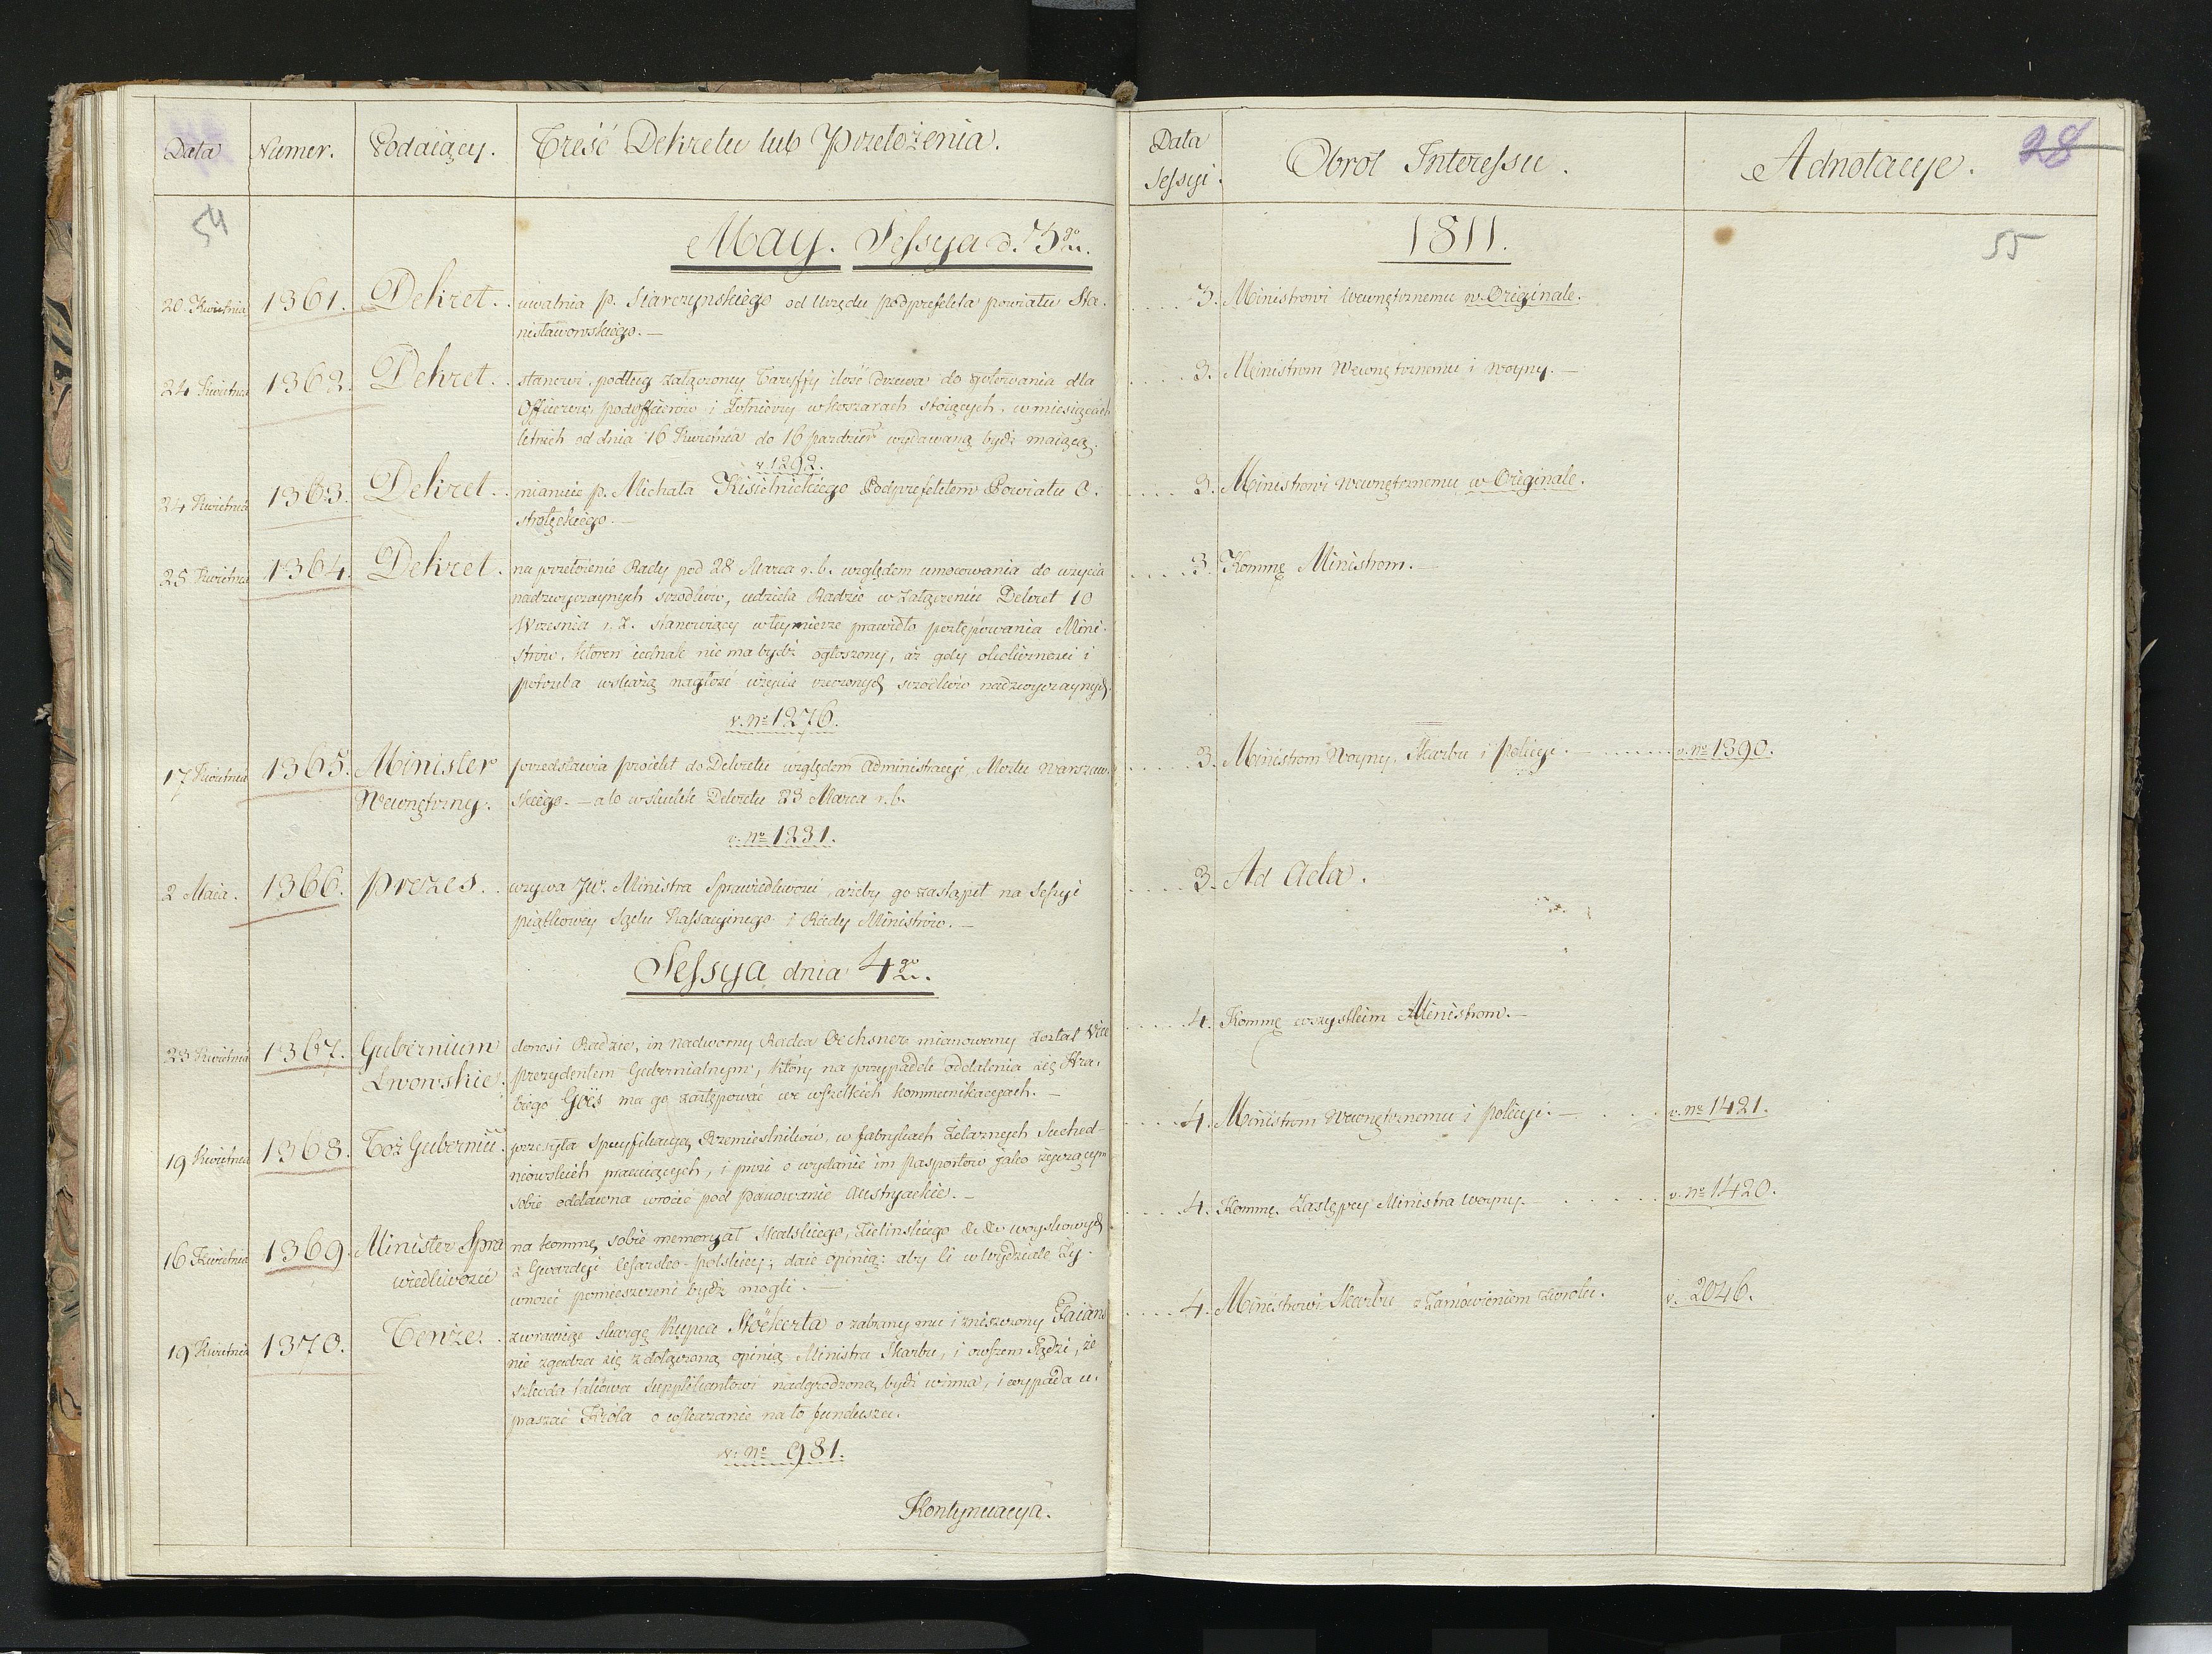 Data Numer. Podaiący. Treść Dekretu lub Przełożenia.
54
May. Sessya d. 3go
20 Kwietnia 1361. Dekret. uwalnia p. Siarczynskiego od Urzędu podprefekta powiatu Sta-
nisławowskiego.—
24 Kwietnia 1362. Dekret. stanowi podług załączoney Taryffy ilość drzewa do gotowania dla
Officerów, podofficerów i Żołnierzy w koszarach stoiących, w miesiącach
letnich od dnia 16 Kwietnia do 16 pazdzier. wydawaną bydź maiącą.
v. 1292.
24 Kwietnia 1363. Dekret. mianuie p. Michała Kisielnickiego Podprefektem Powiatu O-
strołęckiego.—
25 Kwietnia 1364. Dekret. na przełożenie Rady pod 28 Marca r. b. względem umocowania do użycia
nadzwyczaynych srzodków, udziela Radzie w załączeniu Dekret 10
Wrzesnia r. z. stanowiący w teymierze prawidło postępowania Mini-
strów, ktoren iednak nie ma bydź ogłoszony, aż gdy okoliczności i
potrzeba wskażą nagłość użycia rzeczonych srzodków nadzwyczaynych.
v. No 1276.
17 Kwietnia 1365. Minister przedstawia proiekt do Dekretu względem Administracyi Mostu Warszaw-
Wewnętrzny. skiego.— a to w skutek Dekretu 23 Marca r. b.
v. No 1231.
2 Maia. 1366. Prezes. wzywa JW. Ministra Sprawiedliwości, ażeby go zastąpił na Sessyi
piątkowey Sądu Kassacyinego i Rady Ministrów.—
Sessya dnia 4go
23 Kwietnia 1367. Gubernium donosi Radzie, iż nadworny Radca Oechsner mianowany został Vice
Lwowskie. prezydentem Gubernialnym, który na przypadek oddalenia się Hra-
biego Goës ma go zastępować we wszelkich kommunikacyach.—
19 Kwietnia 1368. Toż Gubernium przesyła specyfikacyą Rzemieslników, w fabrykach żelaznych Suched-
niowskich pracuiących, i prosi o wydanie im Pasportów jako życzącym
sobie oddawna wrócić pod panowanie Austryackie.—
16 Kwietnia 1369. Minister Spra na kommę sobie memoryał Skalskiego, Zielinskiego &c &c woyskowych
wiedliwości z Gwardyi Cesarsko-polskiey; daie opinią: aby ci w Wydziale Ży-
wności pomieszczeni bydź mogli.—
19 Kwietnia 1370. Tenże. zwracaiąc skargę Kupca Stökerta o zabrany mu i zniszczony Faians
nie zgadza się z dołączoną opinią Ministra Skarbu, i owszem sądzi, że
szkoda takowa supplikantowi nadgrodzoną bydź winna, i wypada u-
praszać Króla o wskazanie na to funduszu.
v. No 981.
Kontynuacya.
Data
Sessyi. Obrot Interessu. Adnotacye. 28
1811. 55
3. Ministrowi Wewnętrznemu w Originale.
3. Ministrom Wewnętrznemu i Woyny.—
3. Ministrowi Wewnętrznemu w Originale.
3. Kommę Ministrom.—
3. Ministrom Woyny, Skarbu i Policyi.— v. No 1390.
3. Ad Acta.
4. Kommę wszystkim Ministrom.—
4. Ministrom Wewnętrznemu i Policyi.— v. No 1421.
4. Kommę Zastępcy Ministra Woyny. v. No 1420.
4. Ministrowi Skarbu z zamówieniem zwrotu. v. 2046.